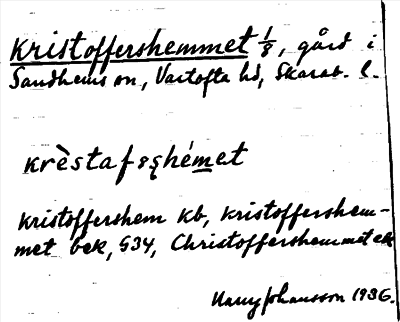 Kristoffershemmet 1/8, gård i
Sandhems sn, Vartofta hd, Skarab. l.
krèstafşhémet
Kristoffershem Kb, Kristoffershem-
met bek, G34, Christoffershemmet ek
Harry Johansson 1936.